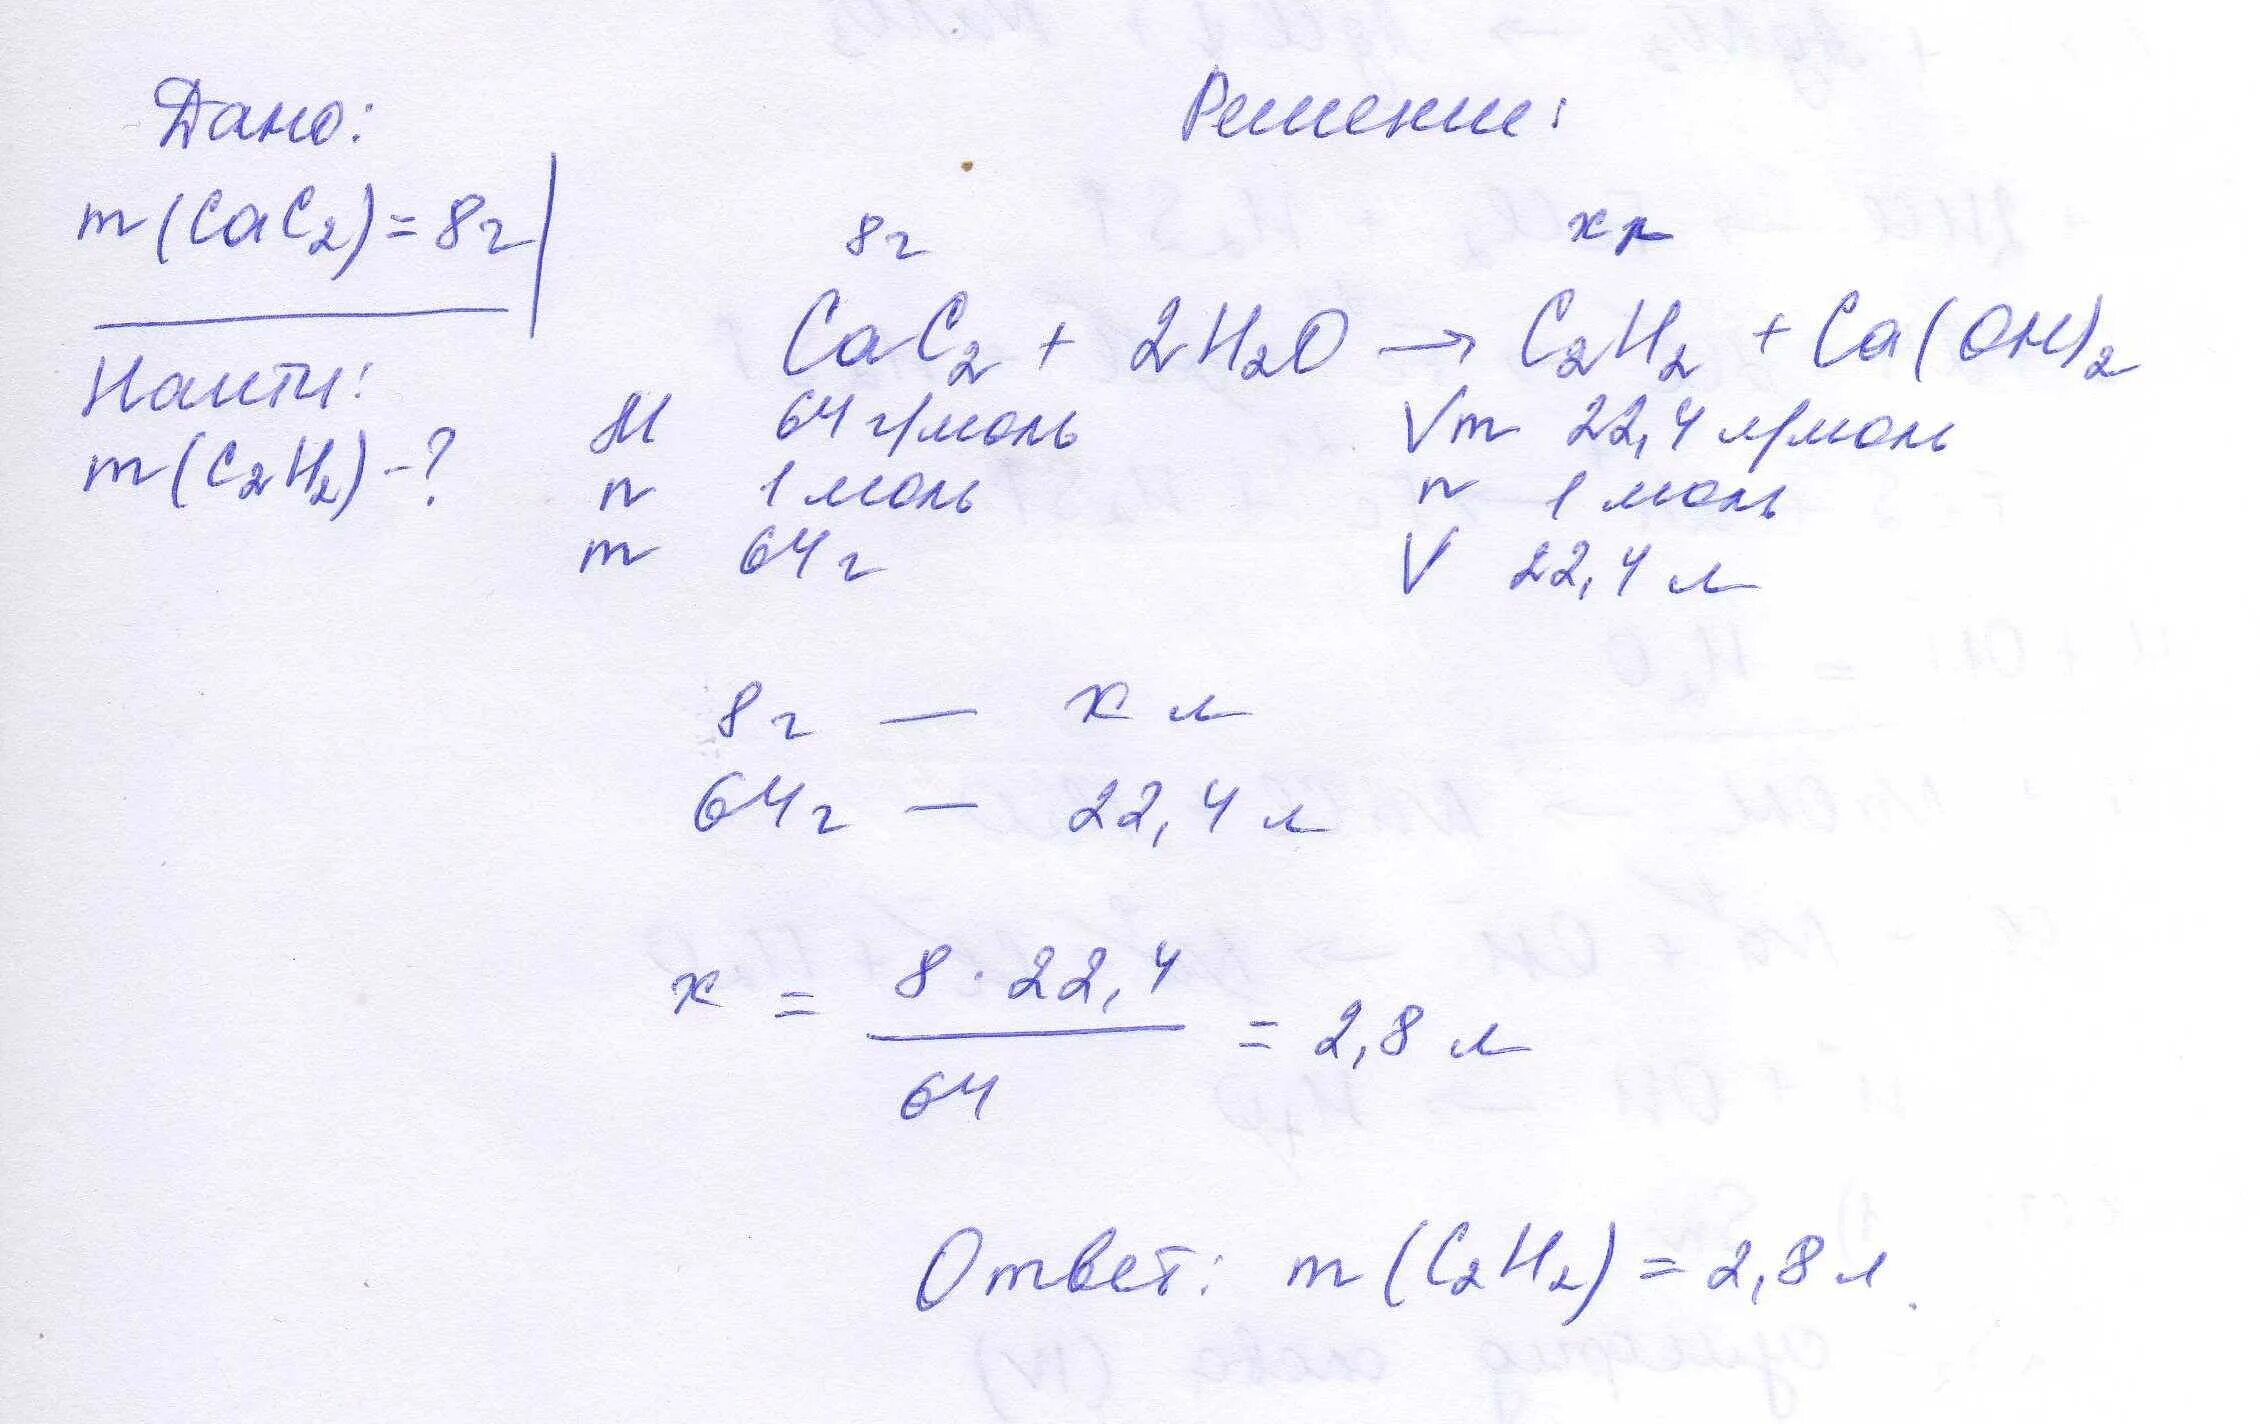 Дано:
m(CaC2)=8г
Найти:
m(C2H2)-?
Решение:
8г xл
CaC2 + 2H2O → C2H2 + Ca(OH)2
M 64 г/моль Vm 22,4 л/моль
n 1 моль n 1 моль
m 64 г V 22,4 л
8 г — x л
64 г — 22,4 л
x = 8 · 22,4 / 64 = 2,8 л
Ответ: m(C2H2) = 2,8 л.